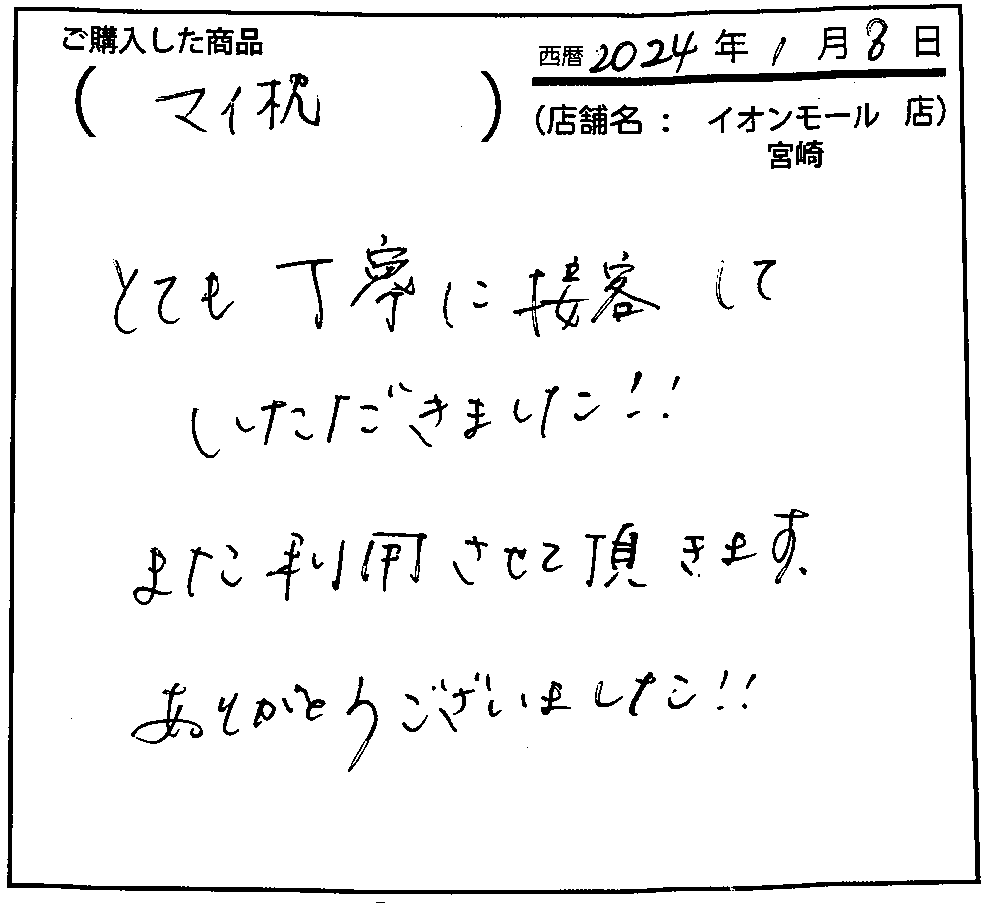 ご購入した商品
(マイ枕)
西暦2024年1月8日
(店舗名: イオンモール 店)
宮崎
とても丁寧に接客して
いただきました!!
また利用させて頂きます、
ありがとうございました!!